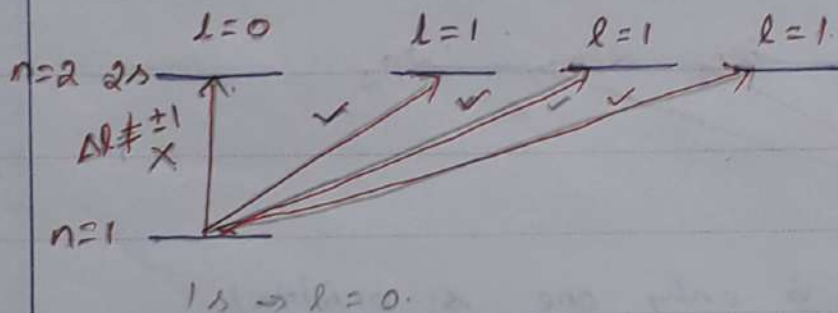 l=0 l=1 l=1 l=1.
n=2 2s
✓ ✓ ✓ ✓
Δl ≠ ±1
×
n=1
1s → l=0.